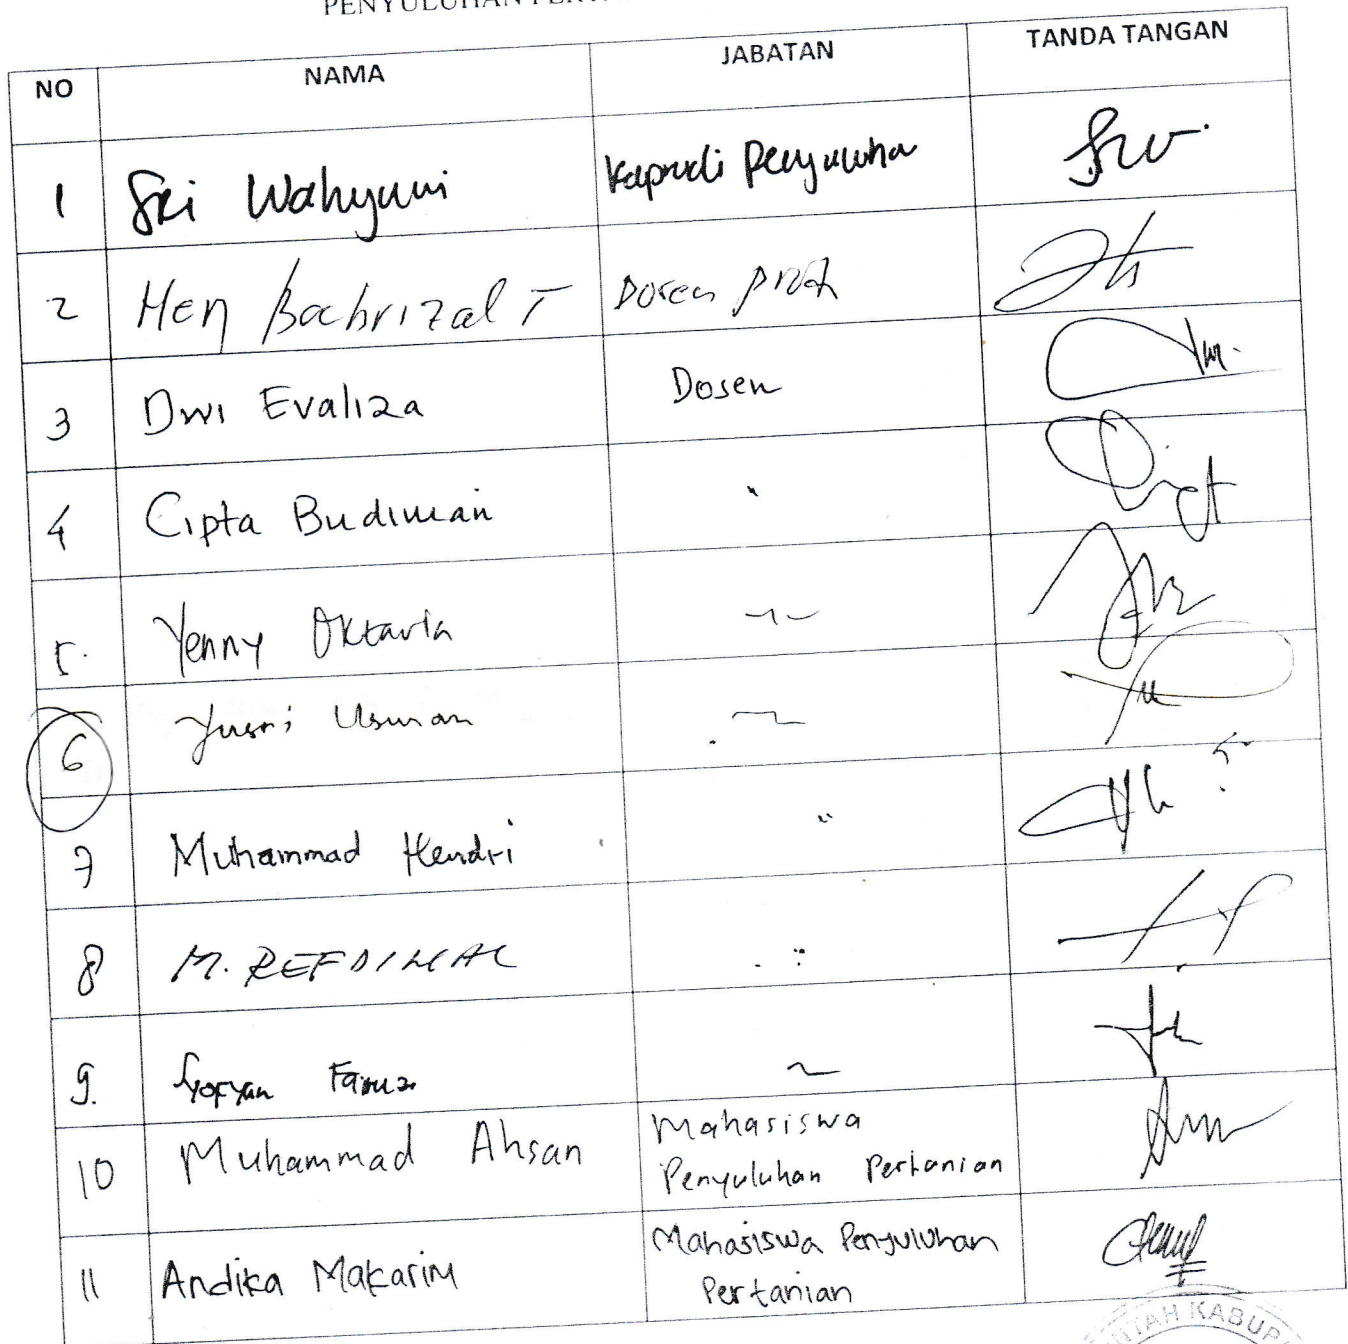 PENYULUHAN
NO NAMA JABATAN TANDA TANGAN
1 Sri Wahyuni Kaprodi Penyuluha
2 Hery Bachrizal T Dosen
3 Dwi Evaliza Dosen
4 Cipta Budiman "
5. Yenny Oktavia "
6 Yusri Usman "
7 Muhammad Hendri "
8 M. REFDINAL "
9. Syofyan Fairuzi "
10 Muhammad Ahsan Mahasiswa
Penyuluhan Pertanian
11 Andika Makarim Mahasiswa Penyuluhan
Pertanian